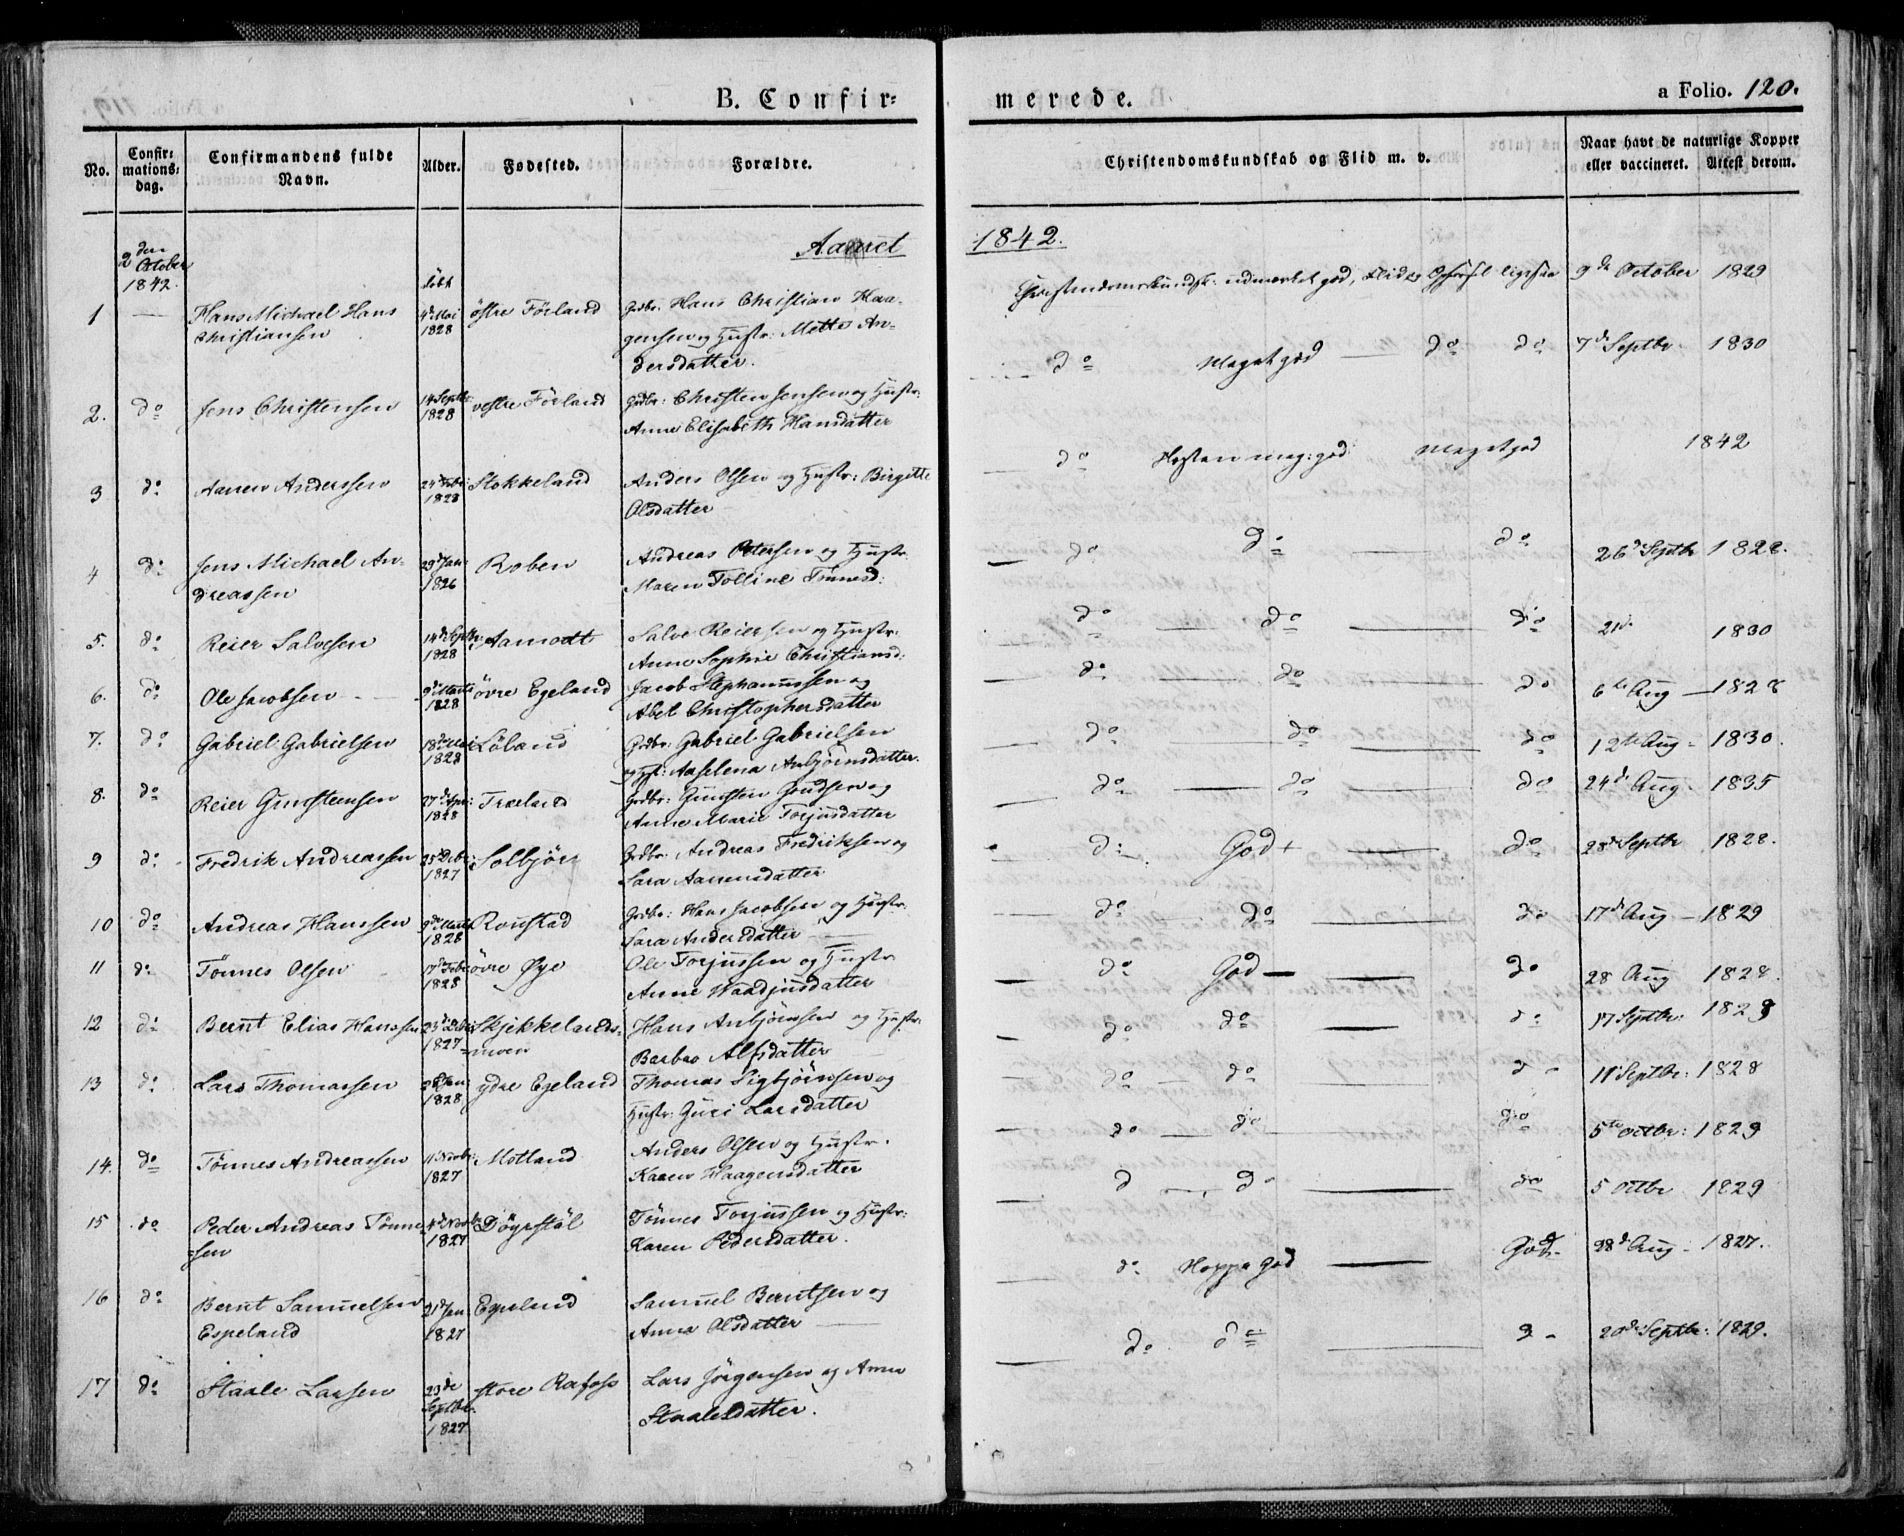 B. Confir=
merede.
a Folio. 120.
No.
Confir=
mations=
dag.
Confirmandens fulde
Navn.
Alder.
Fødested.
Forældre.
Christendomskundskab og Flid m. v.
Naar havt de naturlige Kopper
eller vaccineret. Attest derom.
den
2 October
1842.
Aaaret
1842.
1 — Hans Michael Hans
Christiansen
født
4de Mai
1828
østre Förland
Grdbr: Hans Christian Haa-
gensen og Hustr: Mette An-
dersdatter.
Christendomskundsk: udmærket god, Flid og Opførsel ligesaa 9de October 1829
2. do Jens Christensen
14 Septbr
1828
vestre Förland
Grdbr: Christen Jensen og Hustr:
Anne Elisabeth Hansdatter
do Meget god do do 7de Septbr 1830
3 do Aanen Anderssen
1828
Stokkeland
Anders Olsen og Hustr: Birgitte
Olsdatter
do Næsten meg: god Meget god 1842
4 do Jens Michael An-
dreassen
29de Jan:
1826
Roben
Andreas Petersen og Hustr.
Maren Tolline Tönnesd:
do do — do 26de Septbr 1828.
5. do Reier Salvesen
14de Septbr:
1828
Aamodt
Salve Reiersen og Hustr:
Anne Sophie Christiansd:
do do — do 21de 1830
6. do Ole Jacobsen
9de Marts
1828
övre Egeland
Jacob Stephanussen og
Abel Christophersdatter
do do do 6te Aug — 1828
7. do Gabriel Gabrielsen
18de Mai
1828
Löland
Grdbr: Gabriel Gabrielsen
og H: Aaselena Anbjörnsdatter.
do do do 12te Aug - 1830.
8. do Reier Gunsteensen
27de Apr:
1828
Træland
Grdbr: Gunsten Gundsen og
Anne Marie Torjusdatter
do — do — do 24de Aug - 1835
9 do Fredrik Andreassen
25de Debr:
1827
Solbjör
Grdbr: Andreas Fredriksen og
Sara Aanensdatter
do God + — do 28de Septbr 1828.
10 do Andreas Hanssen
9de Marts
1828
Ronstad
Grdbr: Hans Jacobsen og Hustr:
Sara Andersdatter
do — do do 17de Aug — 1829
11 do Tönnes Olsen
17de Febr
1828
övre Øye
Ole Torjussen og Hustr
Anne Waadjusdatter
do God — — do 28 Aug 1828.
12 do Bernt Elias Hanssen
23de Debr
1827
Skjekkelands-
moen
Hans Anbjörnsen og Hustr:
Barbro Alfsdatter
do do — do 17 Septbr: 1829
13 do Lars Thomassen
28 Jan:
1828
ydre Egeland
Thomas Sigbjörnsen og
Hustr: Guri Larsdatter
do — do — do 11 Septbr: 1828
14. do Tönnes Andreassen
11 Novbr:
1827
Motland
Anders Olsen og Hustr.
Karen Haagensdatter
do — do do 5te Octbr: 1829
15 do Peder Andreas Tönne
sen
4de Novbr
1827
Döyrstöl
Tönnes Torjussen og Hustr:
Karen Pedersdatter.
d — do — do 5 Octbr 1829
16 do Bernt Samuelsen
Espeland
21de Jan:
1827
Espeland
Samuel Berntsen og
Anna Olsdatter
do Noppe God — God 28de Aug - 1827.
17 do Staale Larsen
23de
Septbr.
1827
store Rafoss
Lars Jörgensen og Anna
Staalesdatter.
do do — 20de Septbr: 1829.